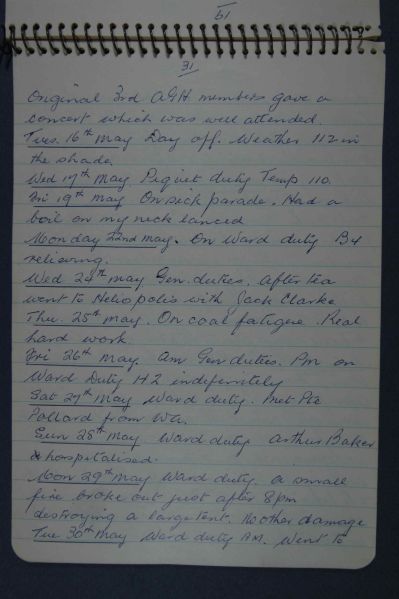 51
31
Original 3rd AGH members gave a
concert which was well attended.
Tues. 16th May Day off. Weather 112 in
the shade.
Wed 17th May. Piquet duty Temp 110.
Fri 19th May On sick parade. Had a
boil on my neck lanced
Monday 22nd May. On Ward duty B4
relieving.
Wed 24th May Gen. duties. After tea
went to Heliopolis with Jack Clarke
Thu. 25th May. On coal fatigue. Real
hard work.
Fri 26th May. am Gen duties. Pm on
Ward Duty H2 indefinitely
Sat 27th May Ward duty. Met Pte
Pollard from WA.
Sun 28th May Ward duty Arthur Baker
hospitalised.
Mon 29th May Ward duty. a small
fire broke out just after 8pm
destroying a large tent. No other damage
Tue 30th May Ward duty AM. Went to